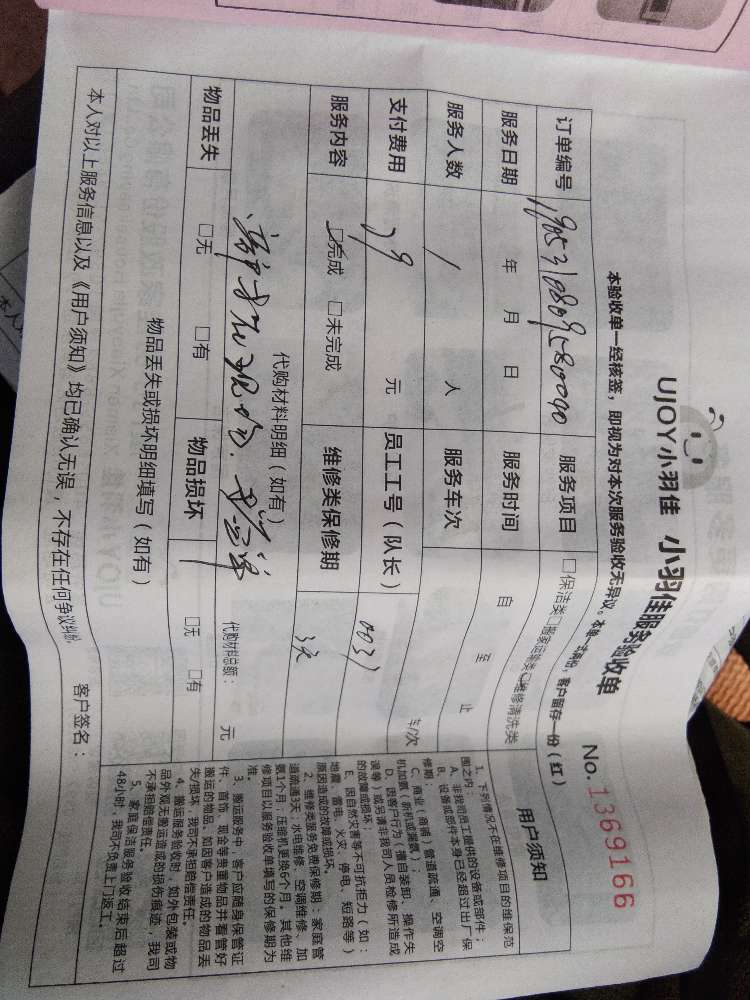 UJOY小羽佳 小羽佳服务验收单
No.1369166
本验收单一经核签，即视为对本次服务验收无异议。本单一式两份，客户留存一份（红）
订单编号 服务项目 □保洁类□搬家运输类□维修清洗类
服务日期 年 月 日 服务时间 自 至 止
服务人数 1 人 服务车次 车/次
支付费用 79 元 员工工号（队长） 0037
服务内容 □完成 □未完成 维修类保修期 3天
代购材料明细（如有）
代购材料总额： 元
物品丢失 □无 □有 物品损坏 □无 □有
物品丢失或损坏明细填写（如有）
本人对以上服务信息以及《用户须知》均已确认无误，不存在任何争议纠纷。 客户签名：
用户须知
1、下列情况不在维修项目的维保范
围之内：
A、非我司员工提供的设备或部件；
B、设备或部件本身已经超过出厂保
修期；
C、商业（商铺）管道疏通、空调空
机加氨（新机或漏氨）；
D、因客户行为（擅自装卸、操作失
误等）或另请非我司人员检修所造成
的故障或损坏；
E、因自然灾害等不可抗拒力（如：
地震、雷电、火灾、停电、短路等）
原因造成的故障或损坏。
2、维修类服务免费保修期：家庭管
道疏通3天；水电维修、空调维修、加
氨1个月；压缩机更换6个月。其他维
修项目以服务验收单填写的保修期为
准。
3、搬运服务中，客户应随身保管证
件、首饰、现金等贵重物品并看管好
搬运的物品。如因客户造成的物品丢
失/损坏，我司不承担赔偿责任。
4、搬运服务验收时，如外包装或物
品外观无搬运造成的损伤痕迹，我司
不承担赔偿责任。
5、家庭保洁服务验收结束后超过
48小时，我司不负责上门返工。